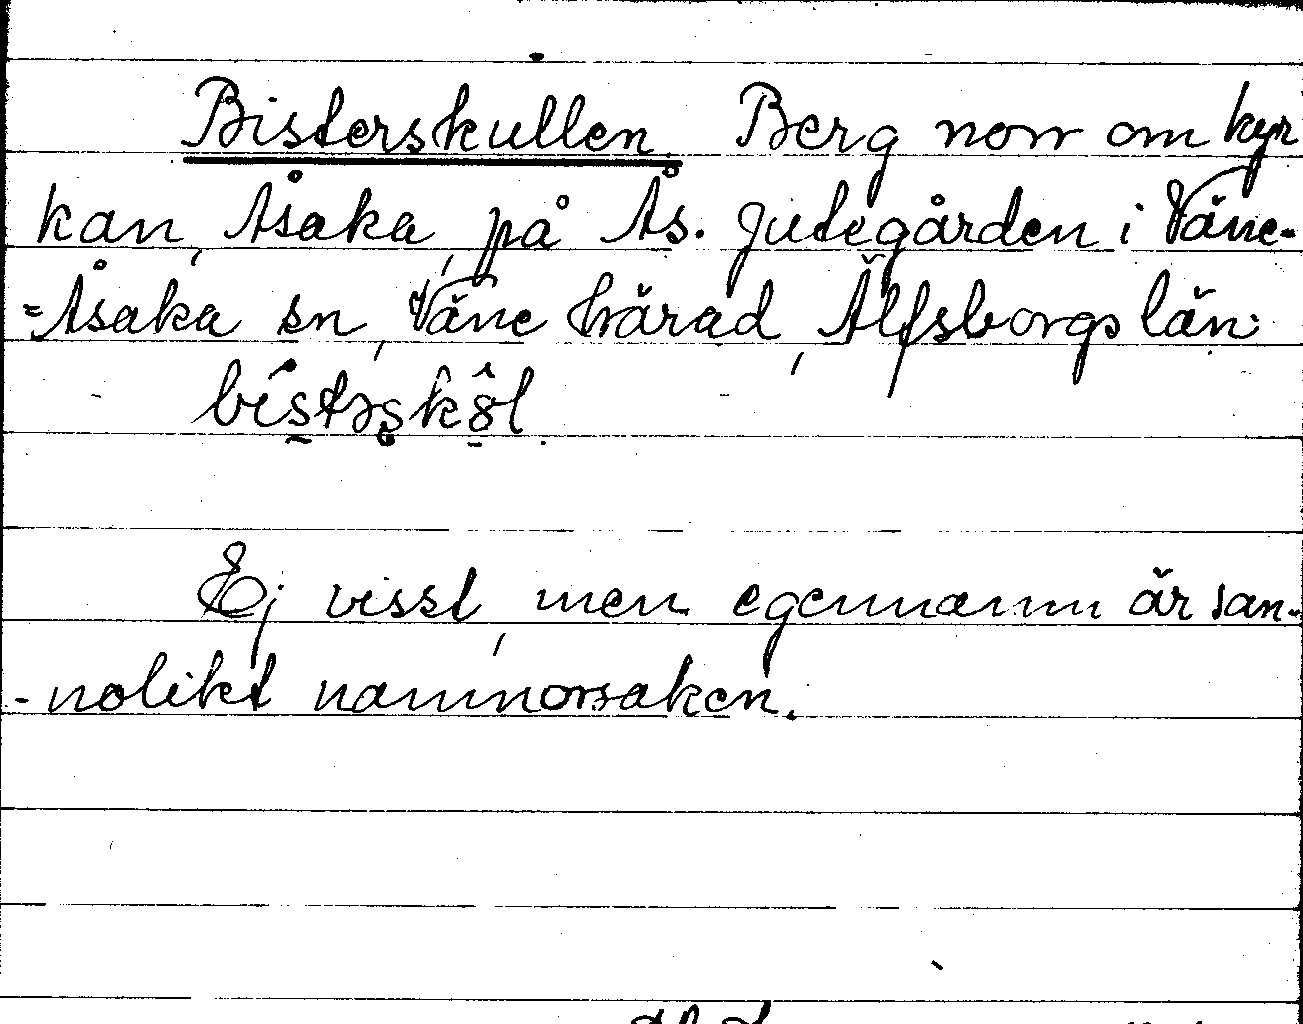 Bisterskullen. Berg norr om kyr
kan, Åsaka, på Ås. Jutegården i Väne-
=Åsaka sn, Väne härad, Älfsborgs län.
bístəskôl.
Ej visst, men egennamn är san-
-nolikt namnorsaken.